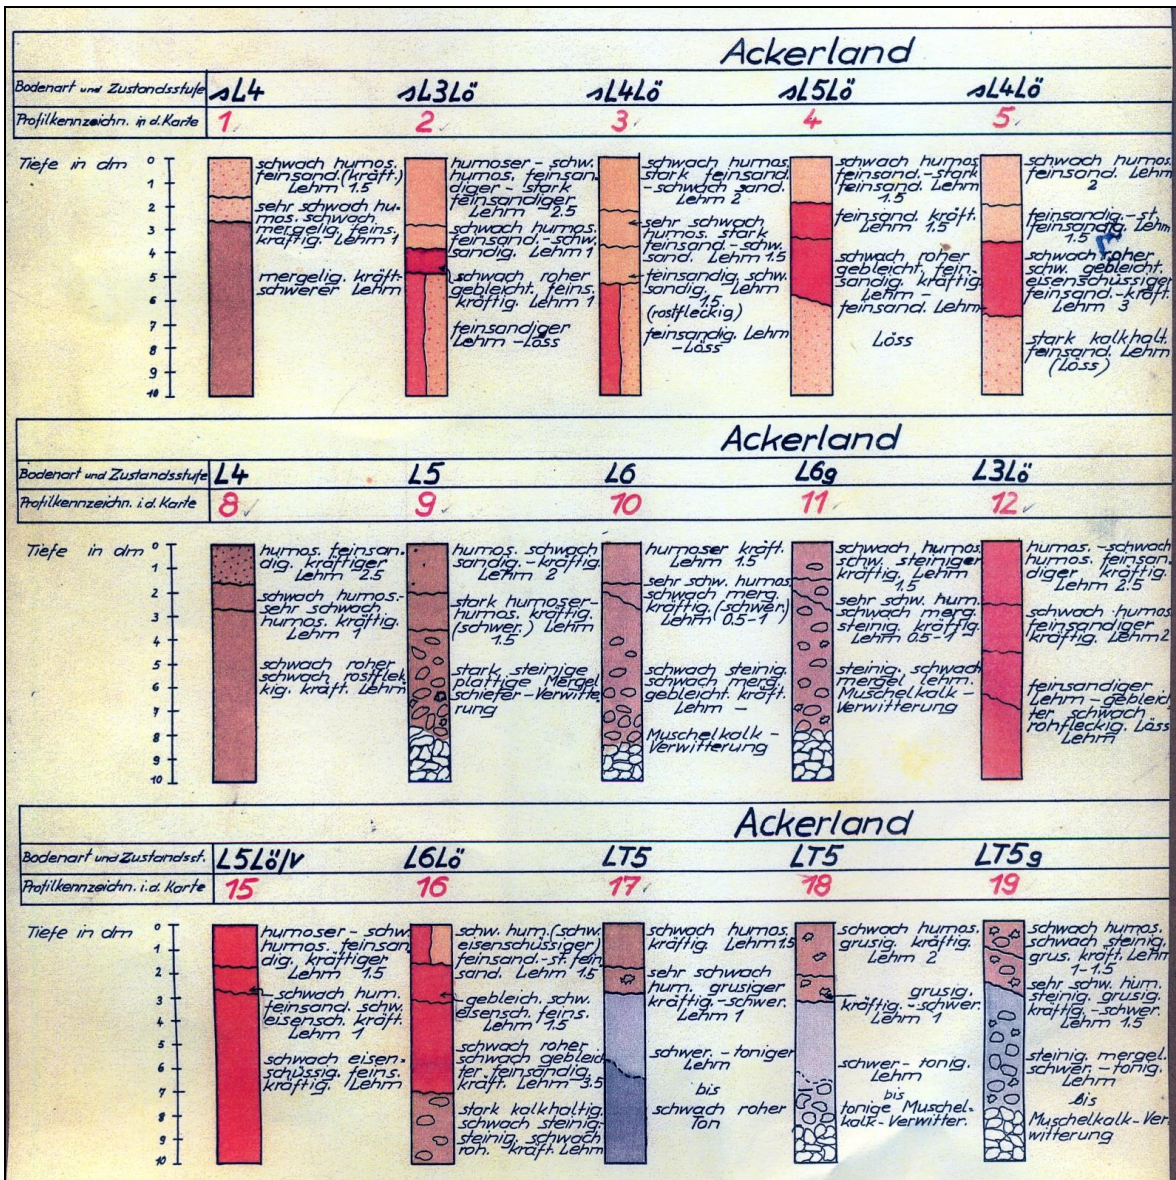 Ackerland
Bodenart und Zustandsstufe sL4 sL3Lö sL4Lö sL5Lö sL4Lö
Profilkennzeichn. in d. Karte 1 2 3 4 5
Tiefe in dm
0
1
2
3
4
5
6
7
8
9
10
schwach humos.
feinsand. (kräft.)
Lehm 1.5
sehr schwach hu-
mos. schwach
mergelig, feins.
kräftig.-Lehm 1
mergelig. kräft-
schwerer Lehm
humoser - schw.
humos. feinsan-
diger - stark
feinsandiger
Lehm 2.5
schwach humos.
feinsand.-schw.
sandig. Lehm 1
schwach roher
gebleicht. feins.
kräftig. Lehm 1
feinsandiger
Lehm - Löss
schwach humos.
stark feinsand.
-schwach sand.
Lehm 2
sehr schwach
humos. stark
feinsand.-schw.
sand. Lehm 1.5
feinsandig, schw.
sandig. Lehm
1.5
(rostfleckig)
feinsandig. Lehm
-Löss
schwach humos.
feinsand.-stark
feinsand. Lehm
1.5
feinsand. kräft.
Lehm 1.5
schwach roher
gebleicht, fein-
sandig. kräftig.
Lehm -
feinsand. Lehm
Löss
schwach humos.
feinsand. Lehm
2
feinsandig.-st.
feinsandig. Lehm
1.5
schwach roher
schw. gebleicht.
eisenschüssiger
feinsand.-kräft.
Lehm 3
stark kalkhalt.
feinsand. Lehm
(Löss)
Ackerland
Bodenart und Zustandsstufe L4 L5 L6 L6g L3Lö
Profilkennzeichn. i. d. Karte 8 9 10 11 12
Tiefe in dm
0
1
2
3
4
5
6
7
8
9
10
humos. feinsan-
dig. kräftiger
Lehm 2.5
schwach humos.-
sehr schwach
humos. kräftig.
Lehm 1
schwach roher
schwach rostflek
kig. kräft. Lehm
humos. schwach
sandig.-kräftig.
Lehm 2
stark humoser-
humos. kräftig.
(schwer.) Lehm
1.5
stark steinige
plattige Mergel
schiefer-Verwitte
rung
humoser kräft.
Lehm 1.5
sehr schw. humos
schwach merg.
kräftig.(schwer.)
Lehm 0.5-1
schwach steinig.
schwach merg.
gebleicht. kräft.
Lehm -
Muschelkalk -
Verwitterung
schwach humos.
schw. steiniger
kräftig. Lehm
1.5
sehr schw. hum.
schwach merg.
steinig. kräftig.
Lehm 0.5-1
steinig. schwach
mergel. lehm.
Muschelkalk -
Verwitterung
humos. -schwach
humos. feinsan-
diger kräftig.
Lehm 2.5
schwach humos
feinsandiger
kräftig. Lehm 2
feinsandiger
Lehm-gebleich
ter schwach
rohfleckig. Löss
Lehm
Ackerland
Bodenart und Zustandsst. L5Lö/V L6Lö LT5 LT5 LT5g
Profilkennzeichn. i. d. Karte 15 16 17 18 19
Tiefe in dm
0
1
2
3
4
5
6
7
8
9
10
humoser - schw.
humos. feinsan
dig. kräftiger
Lehm 1.5
schwach hum.
feinsand. schw.
eisensch. kräft.
Lehm 1
schwach eisen-
schüssig. feins.
kräftig. Lehm
schw. hum. (schw.
eisenschüssiger)
feinsand.-st. fein
sand. Lehm 1.5
gebleich. schw.
eisensch. feins.
Lehm 1.5
schwach roher
schwach gebleich
ter feinsandig.
kräft. Lehm-3.5
stark kalkhaltig.
schwach steinig-
steinig. schwach
roh. -kräft. Lehm
schwach humos.
kräftig. Lehm 1.5
sehr schwach
hum. grusiger
kräftig-schwer.
Lehm 1
schwer.-toniger
Lehm
bis
schwach roher
Ton
schwach humos.
grusig. kräftig.
Lehm 2
grusig.
kräftig.-schwer.
Lehm 1
schwer-tonig.
Lehm
bis
tonige Muschel-
kalk-Verwitter.
schwach humos.
schwach steinig.
grus. kräft. Lehm
1-1.5
sehr schw. hum.
steinig. grusig.
kräftig.-schwer.
Lehm 1.5
steinig. mergel.
schwer.-tonig.
Lehm
bis
Muschelkalk-Ver
witterung